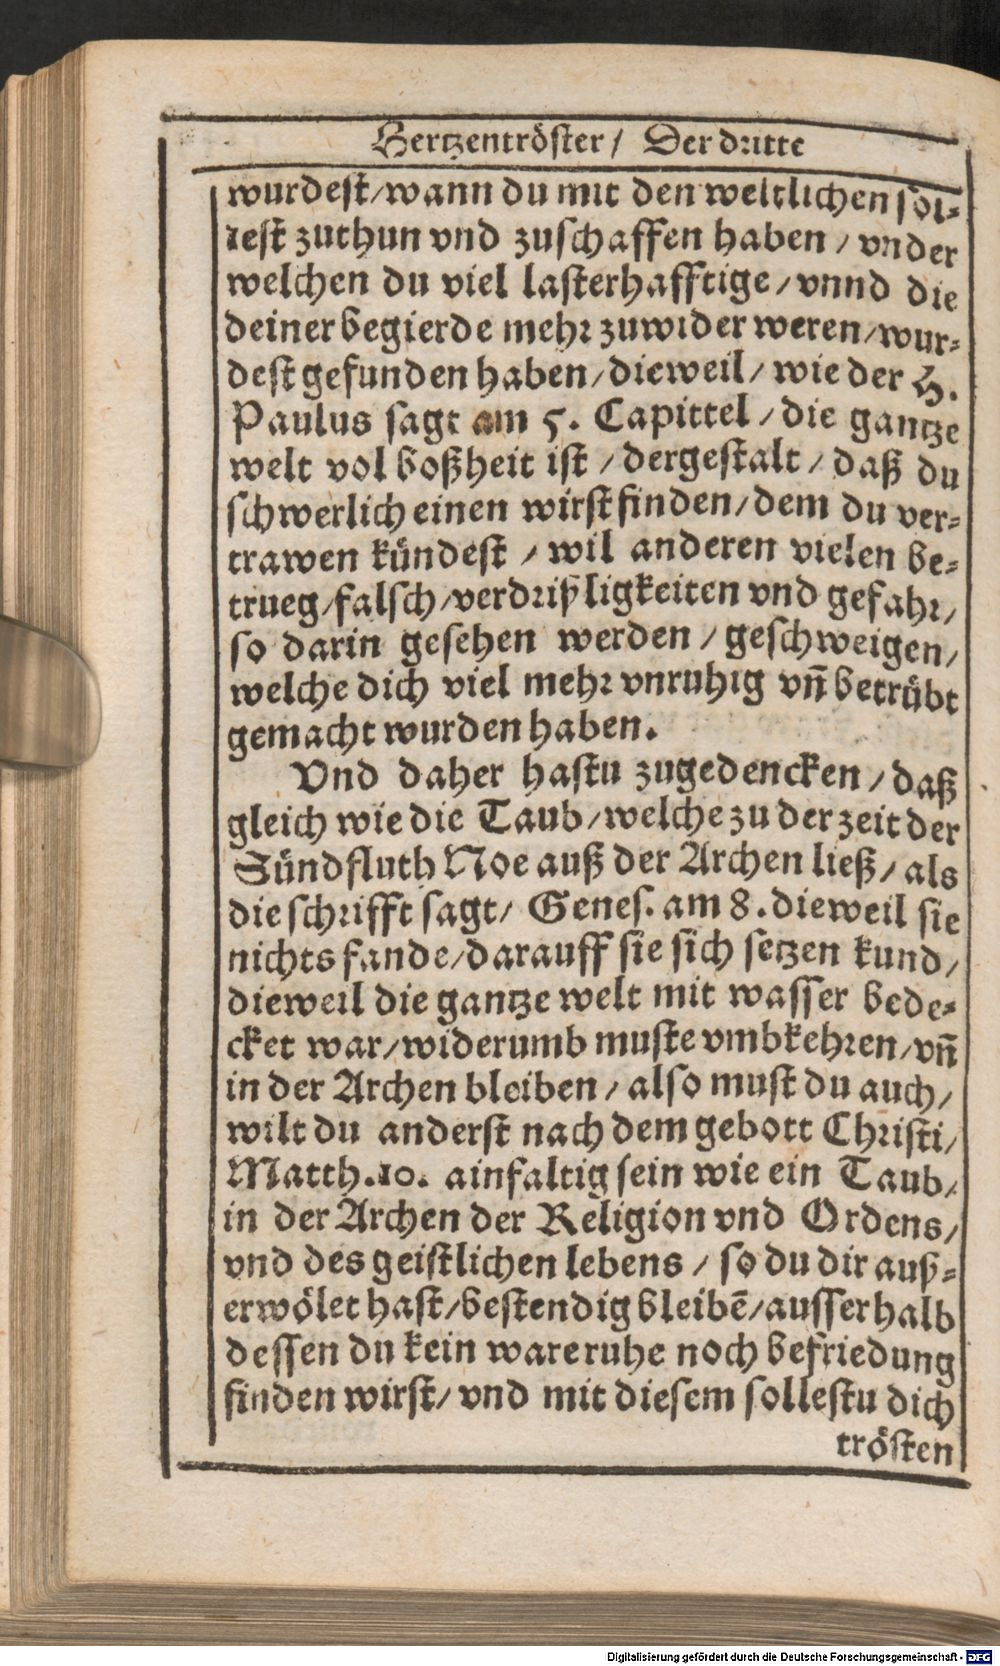 Hertzentröster / Der dritte
wurdest / wann du mit den weltlichen sol-
lest zuthun vnd zuschaffen haben / vnder
welchen du viel lasterhafftige / vnnd die
deiner begierde mehr zuwider weren / wur-
dest gefunden haben / dieweil / wie der H.
Paulus sagt am 5. Capittel / die gantze
welt vol boßheit ist / dergestalt / daß du
schwerlich einen wirst finden / dem du ver-
trawen kündest / wil anderen vielen be-
trueg / falsch / verdrißligkeiten vnd gefahr /
so darin gesehen werden / geschweigen /
welche dich viel mehr vnruhig vñ betrübt
gemacht wurden haben.
Vnd daher hastu zugedencken / daß
gleich wie die Taub / welche zu der zeit der
Sündfluth Noe auß der Archen ließ / als
die schrifft sagt / Genes. am 8. dieweil sie
nichts fande / darauff sie sich setzen kund /
dieweil die gantze welt mit wasser bede-
cket war / widerumb muste vmbkehren / vñ
in der Archen bleiben / also must du auch /
wilt du anderst nach dem gebott Christi /
Matth. 10. ainfaltig sein wie ein Taub /
in der Archen der Religion vnd Ordens /
vnd des geistlichen lebens / so du dir auß-
erwölet hast / bestendig bleibē / ausserhalb
dessen du kein ware ruhe noch befriedung
finden wirst / vnd mit diesem sollestu dich
trösten
Digitalisierung gefördert durch die Deutsche Forschungsgemeinschaft - DFG